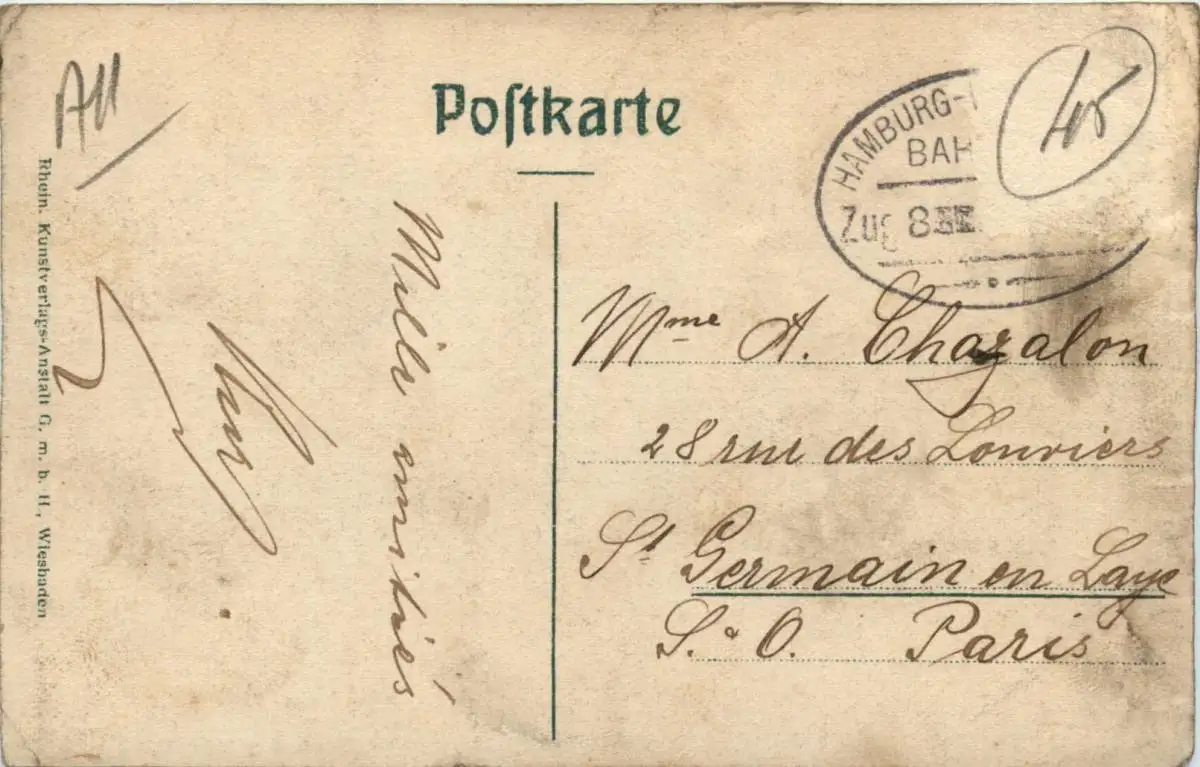 All
Postkarte
HAMBURG-
BAH
Zug 8
45
Mille amitiés
Mme A. Chazalon
28 rue des Louviers
St Germain en Laye
S. & O. Paris
Rhein. Kunstverlags-Anstalt G. m. b. H., Wiesbaden